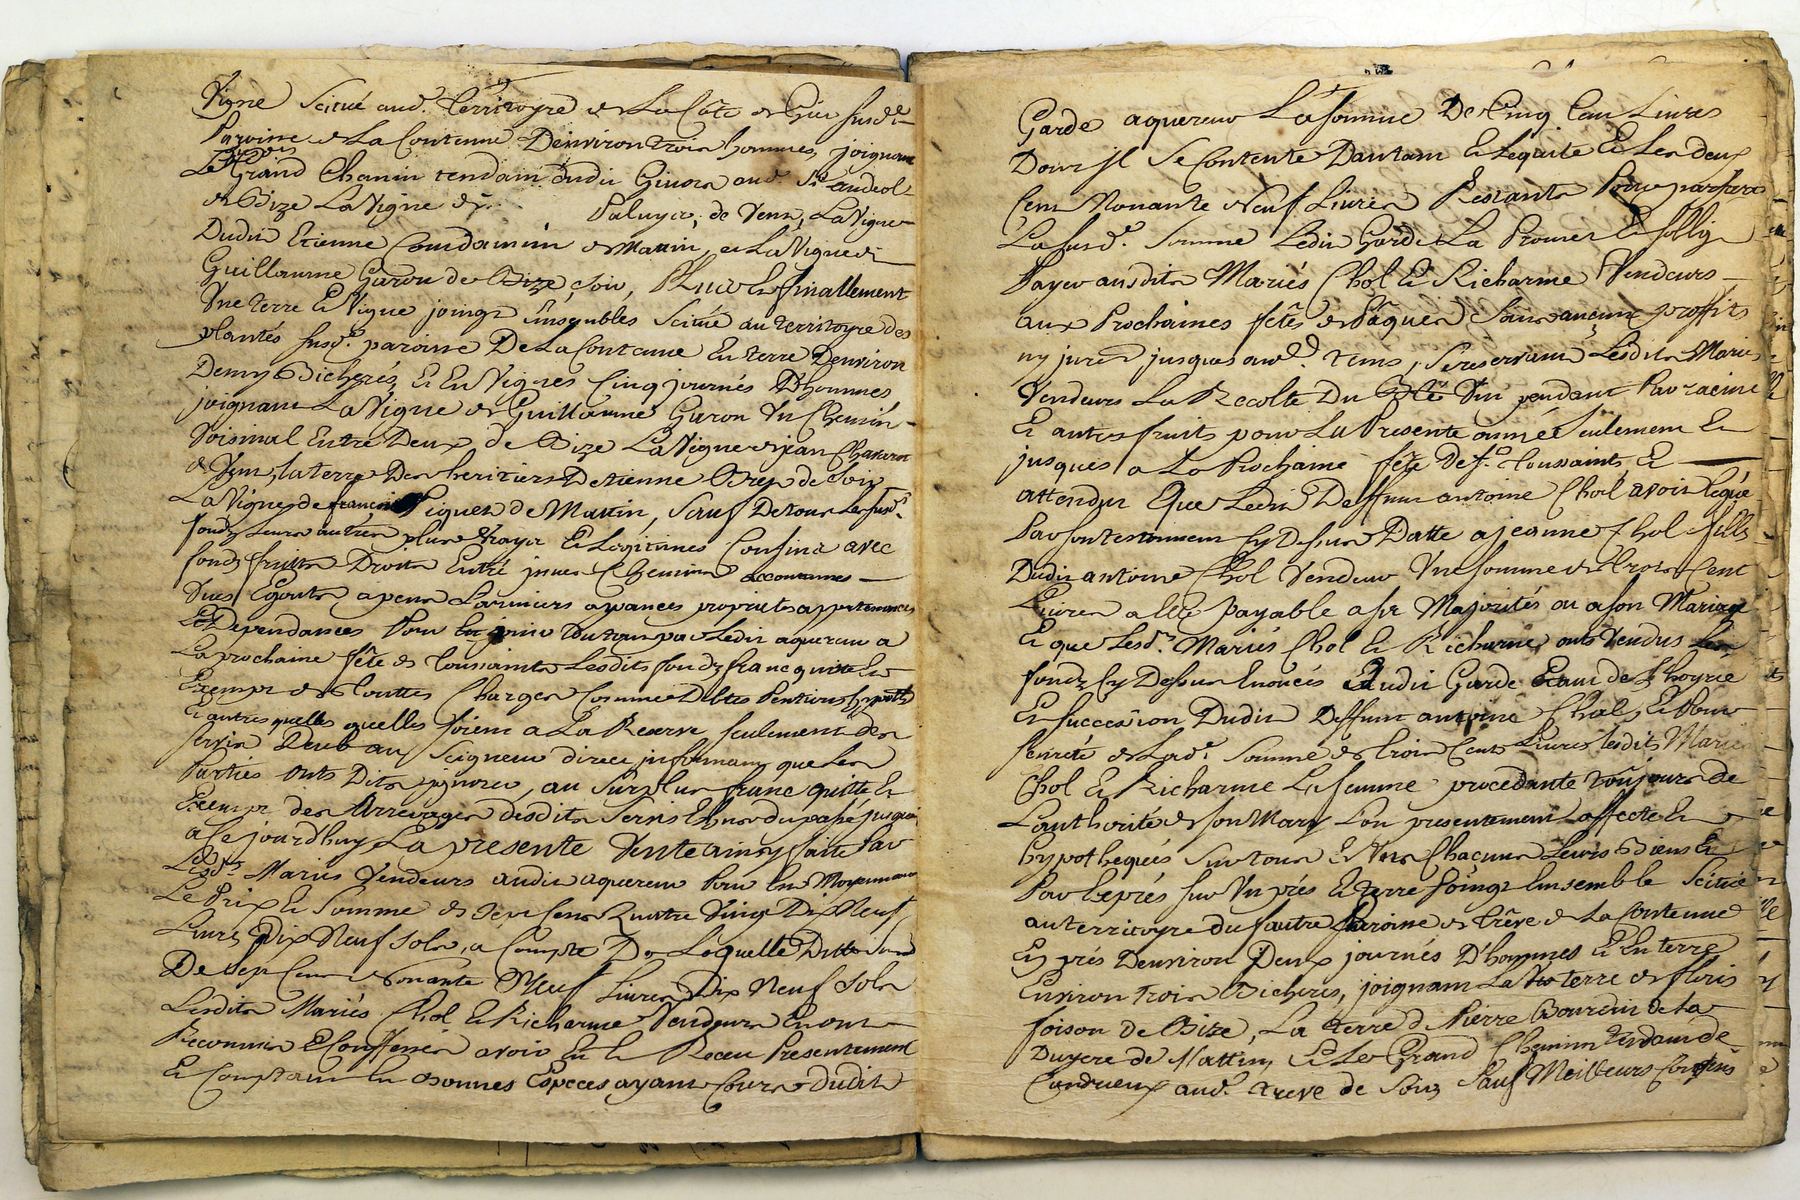 Vigne Scitué aud. Territoyre de La Côte de Gier susd.e
Paroisse de La Contenue Denviron trois hommes, joignant
Le Grand Chemin tendant dudit Givors aud. St. andeol
de Bize La Vigne de Paluya de Vent, La Vigne
Dudit Etienne Condamin de Matin, et La Vigne de
Guillaume Garon de Bize, soir, Plus Et finallement
Une terre Et Vigne joingt Ensembles Scitué au territoyre des
plantés susd.e paroisse De La Contenue En terre Denviron
Demy Bicherés Et En Vignes Cinq journés D'hommes
joignant La Vigne de Guillaume Garon Un Chemin
Voisinal Entre Deux de Bize La Vigne de jean
de Vent, la terre Des heritiers Detienne de Soir
La Vigne de françois de Matin, Sauf De tous Les susd.s
fondz Leurs autres plus Vrays Et Legitimes Confins avec
fondz fruits Droits Entré jssues Chemins accoutumes
Vues Egouts apens Larmiers aysances proprietes appartenances
Et Dependances, Pour En jouir Du tout par Ledit aquereur a
La prochaine fête de Toussaints Lesdits fondz franc quitte Et
Exempt de Touttes Charges Comme Debtes Pentions hypoth
Et autres quelles quelles soient a La Reserve seulement des
servis Deub au Seigneur direct
Parties onts Dits ygnorer, au Surplus franc quitte Et
Exempt des Arrerages desdits Servis Et du passé jusques
a Ce jourdhuy La presente Vente ainsy faitte Par
Lesd.ts Mariés Vendeurs audit aquereur Pour Et Moyennant
Le Prix Et Somme de Neuf Cens Quatre Vingt Dix Neuf
Livres Dix Neuf sols, a Compte De Laquelle Ditte
De Sept Cent Nonante Neuf Livres Dix Neuf sols
Lesdits Mariés Chol Et Richarme Vendeurs Enont
Reconnus Et Confesses avoir Eu Et Receu Presentement
Et Comptant En Bonnes Especes ayant Cours dudit
Garde aquereur La somme De Cinq Cent Livres
Dont Jl Se Contente Dautant Et Lequitte Et Les deux
Cent Nonante Neuf Livres Restants Pour parfaire
La susd.e Somme Ledit Garde La Promet Et sobligé
Payer ausdits Mariés Chol Et Richarme Vendeurs
aux Prochaines fêtes de Pâques Sans aucuns proffits
ny jnterets jusques aud. tems, Sereservant Lesdits Mariés
Vendeurs La Recolte Du Blé Vin pendant Par racine
Et autres fruits pour La Presente année Seulement Et
jusques a La Prochaine fête De S.t Toussaints, Et
attendu Que Ledit Deffunt antoine Chol avoit legué
Par son testament Cy Dessus Datté a jeanne Chol fille
Dudit antoine Chol Vendeur Une somme de Trois Cent
Livres a Elle payable a sa Majorités ou a son Mariage
Et que Lesd.s Mariés Chol Et Richarme onts Vendus Les
fondz Cy Dessus Enoncés Audit Garde Etant de Lhoyrie
Et Succession Dudit Deffunt antoine Chol, Et Pour
seureté de Lad.e Somme de Trois Cent Livres lesdits Mariés
Chol Et Richarme Le femme procedante toûjours de
Lauthorité de son Mary L'on presentement affecte Et
hypothequés Sur tous Et Uns Chacuns Leurs Biens Et
Par Exprés sur Un prés Et terre joingt Ensemble Scitué
au territoyre du fautre Paroisse de Trêve de La Contenue
En prés Denviron Deux journés D'hommes Et En terre
Environ trois Bicherés, joignant La terre de fleris
foison de Bize, La terre de Pierre Bourdin de la
Duyere de Matin, Et Le Grand Chemin tendant de
Condrieux aud. treve de Soir, Sauf Meilleurs Confins